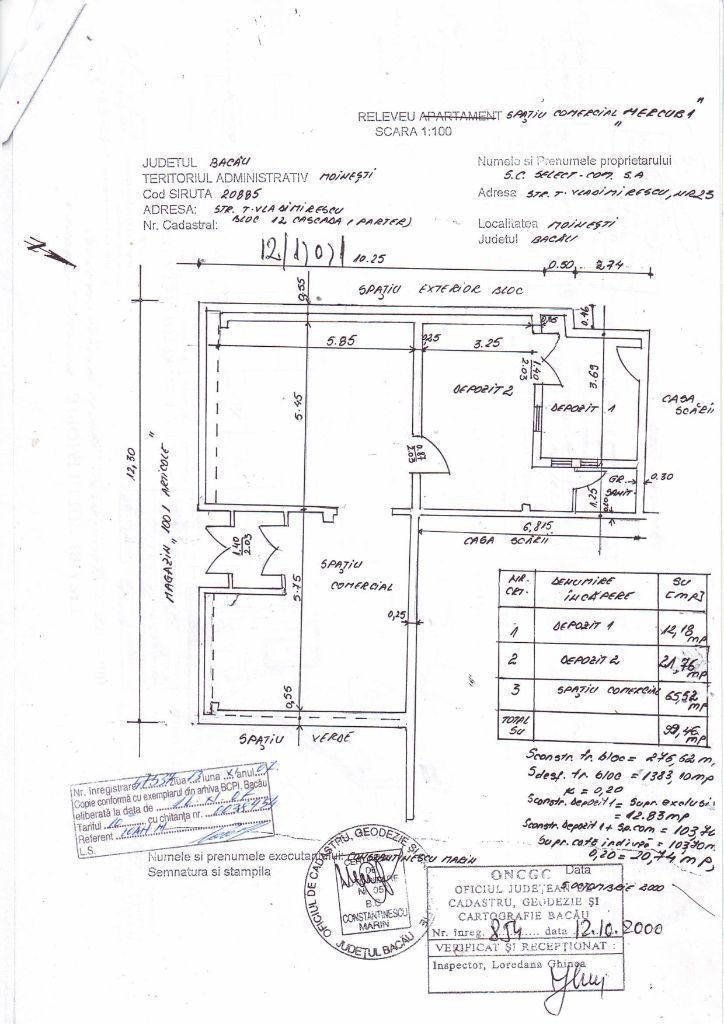 RELEVEU APARTAMENT SPAŢIU COMERCIAL "MERCUR 1"
SCARA 1:100
JUDETUL BACĂU
TERITORIUL ADMINISTRATIV MOINEŞTI
Cod SIRUTA 20885
ADRESA: STR. T. VLADIMIRESCU
Nr. Cadastral: BLOC 12 CASCADA (PARTER)
Numele si Prenumele proprietarului
S.C. SELECT-COM. S.A
Adresa STR. T. VLADIMIRESCU, NR 25
Localitatea MOINEŞTI
Judetul BACĂU
N
10.25
0.50
2.74
0.55
SPAŢIU EXTERIOR BLOC
0.46
5.85
0.25
3.25
1.40
2.03
3.69
5.45
DEPOZIT 2
DEPOZIT 1
CASA SCĂRII
12,30
MAGAZIN "1001 ARTICOLE"
0.87
2.03
GR. SANIT.
1.25
0.30
6.815
CASA SCĂRII
1.40
2.03
SPAŢIU
COMERCIAL
5.75
0,25
0,55
SPAŢIU VERDE
NR. CRT. DENUMIRE ÎNCĂPERE SU [MP]
1 DEPOZIT 1 12,18 mp
2 DEPOZIT 2 21,76 mp
3 SPAŢIU COMERCIAL 65,52 mp
TOTAL SU 99,46 mp
Sconstr. tr. bloc = 276,62 m,
Sdesf. tr. bloc = 1383,10 mp
K = 0,20
Sconstr. depozit 1 = Supr. exclusi
= 12.83 mp
Sconstr. depozit 1 + sp. com = 103,70
Supr. cotă indiviză = 103,70 m.
0,20 = 20,74 mp,
Nr. înregistrare ziua 13 luna XI anul 07
Copie conformă cu exemplarul din arhiva BCPI, Bacău
eliberată la data de
Tariful 10 cu chitanţa nr.
Referent IOAN M
L.S.
Numele si prenumele executantului: CONSTANTINESCU MARIN
Semnatura si stampila
OFICIUL DE CADASTRU, GEODEZIE ŞI
JUDEŢUL BACĂU
CONSTANTINESCU
MARIN
Data
OCTOMBRIE 2000
ONCGC
OFICIUL JUDEŢEAN
CADASTRU, GEODEZIE ŞI
CARTOGRAFIE BACĂU
Nr. înreg. 854 data 12.10.2000
VERIFICAT ŞI RECEPŢIONAT :
Inspector, Loredana Ghinea